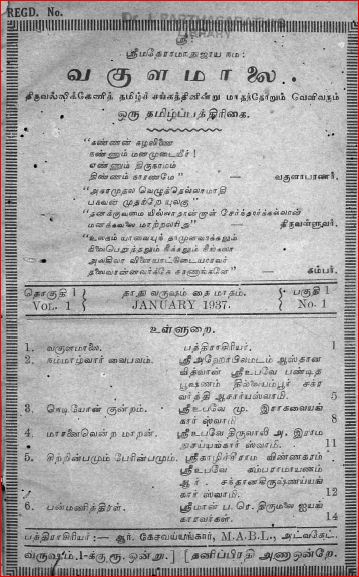 REGD. No.
LIBRARY
ஸ்ரீ:
ஸ்ரீமதேராமாநுஜாய நம:
வகுளமாலை.
திருவல்லிக்கேணித் தமிழ்ச் சங்கத்தினின்று மாதந்தோறும் வெளிவரும்
ஒரு தமிழ்ப்பத்திரிகை.
"கண்ணன் கழலிணை
நண்ணும் மனமுடையீர்!
எண்ணும் திருநாமம்
திண்ணம் நாரணமே" — வகுளாபரணர்.
"அகரமுதல வெழுத்தெல்லாமாதி
பகவன் முதற்றே யுலகு"
"தனக்குவமை யில்லாதான்றாள் சேர்ந்தார்க்கல்லான்
மனக்கவலை மாற்றலரிது" — திருவள்ளுவர்.
"உலகம் யாவையுந் தாமுளவாக்கலும்
நிலைபெறுத்தலும் நீக்கலும் நீங்கலா
அலகிலா விளையாட்டுடையாரவர்
தலைவரன்னவர்க்கே சரணாங்களே" — கம்பர்.
தொகுதி 1 தாது வருஷம் தை மாதம். பகுதி 1
VOL. 1 JANUARY 1937. No. 1
உள்ளுறை.
1. வகுளமாலை. பத்திராசிரியர். 1
2. நம்மாழ்வார் வைபவம். ஸ்ரீ அஹோபிலமடம் ஆஸ்தான
வித்வான் ஸ்ரீ உபவே பண்டித
பூஷணம் தில்லையம்பூர் சக்ர
வர்த்தி ஆசார்யஸ்வாமி. 5
3. நெடியோன் குன்றம். ஸ்ரீ உபவே மு. இராகவையங்
கார் ஸ்வாமி 8
4. மாரனைவென்ற மாறன். ஸ்ரீ உபவே திருவாலி அ. இராம
கார் ஸ்வாமி. 11
5. சிற்றின்பமும் பேரின்பமும்.
ஸ்ரீ உபவே கம்பராமாயணம்
ஆர். சந்தானகிருஷ்ணய்யங்
கார் ஸ்வாமி. 12
6. பன்மணித்திரள். ஸ்ரீமான் ப. ரெ. திருமலை ஐயங்
காரவர்கள். 14
பத்திராசிரியர்:— ஆர். கேசவய்யங்கார், M.A.B.L., அட்வகேட்.
வருஷம் 1-க்கு ரூ. ஒன்று.] [தனிப்பிரதி அணா ஒன்றே.